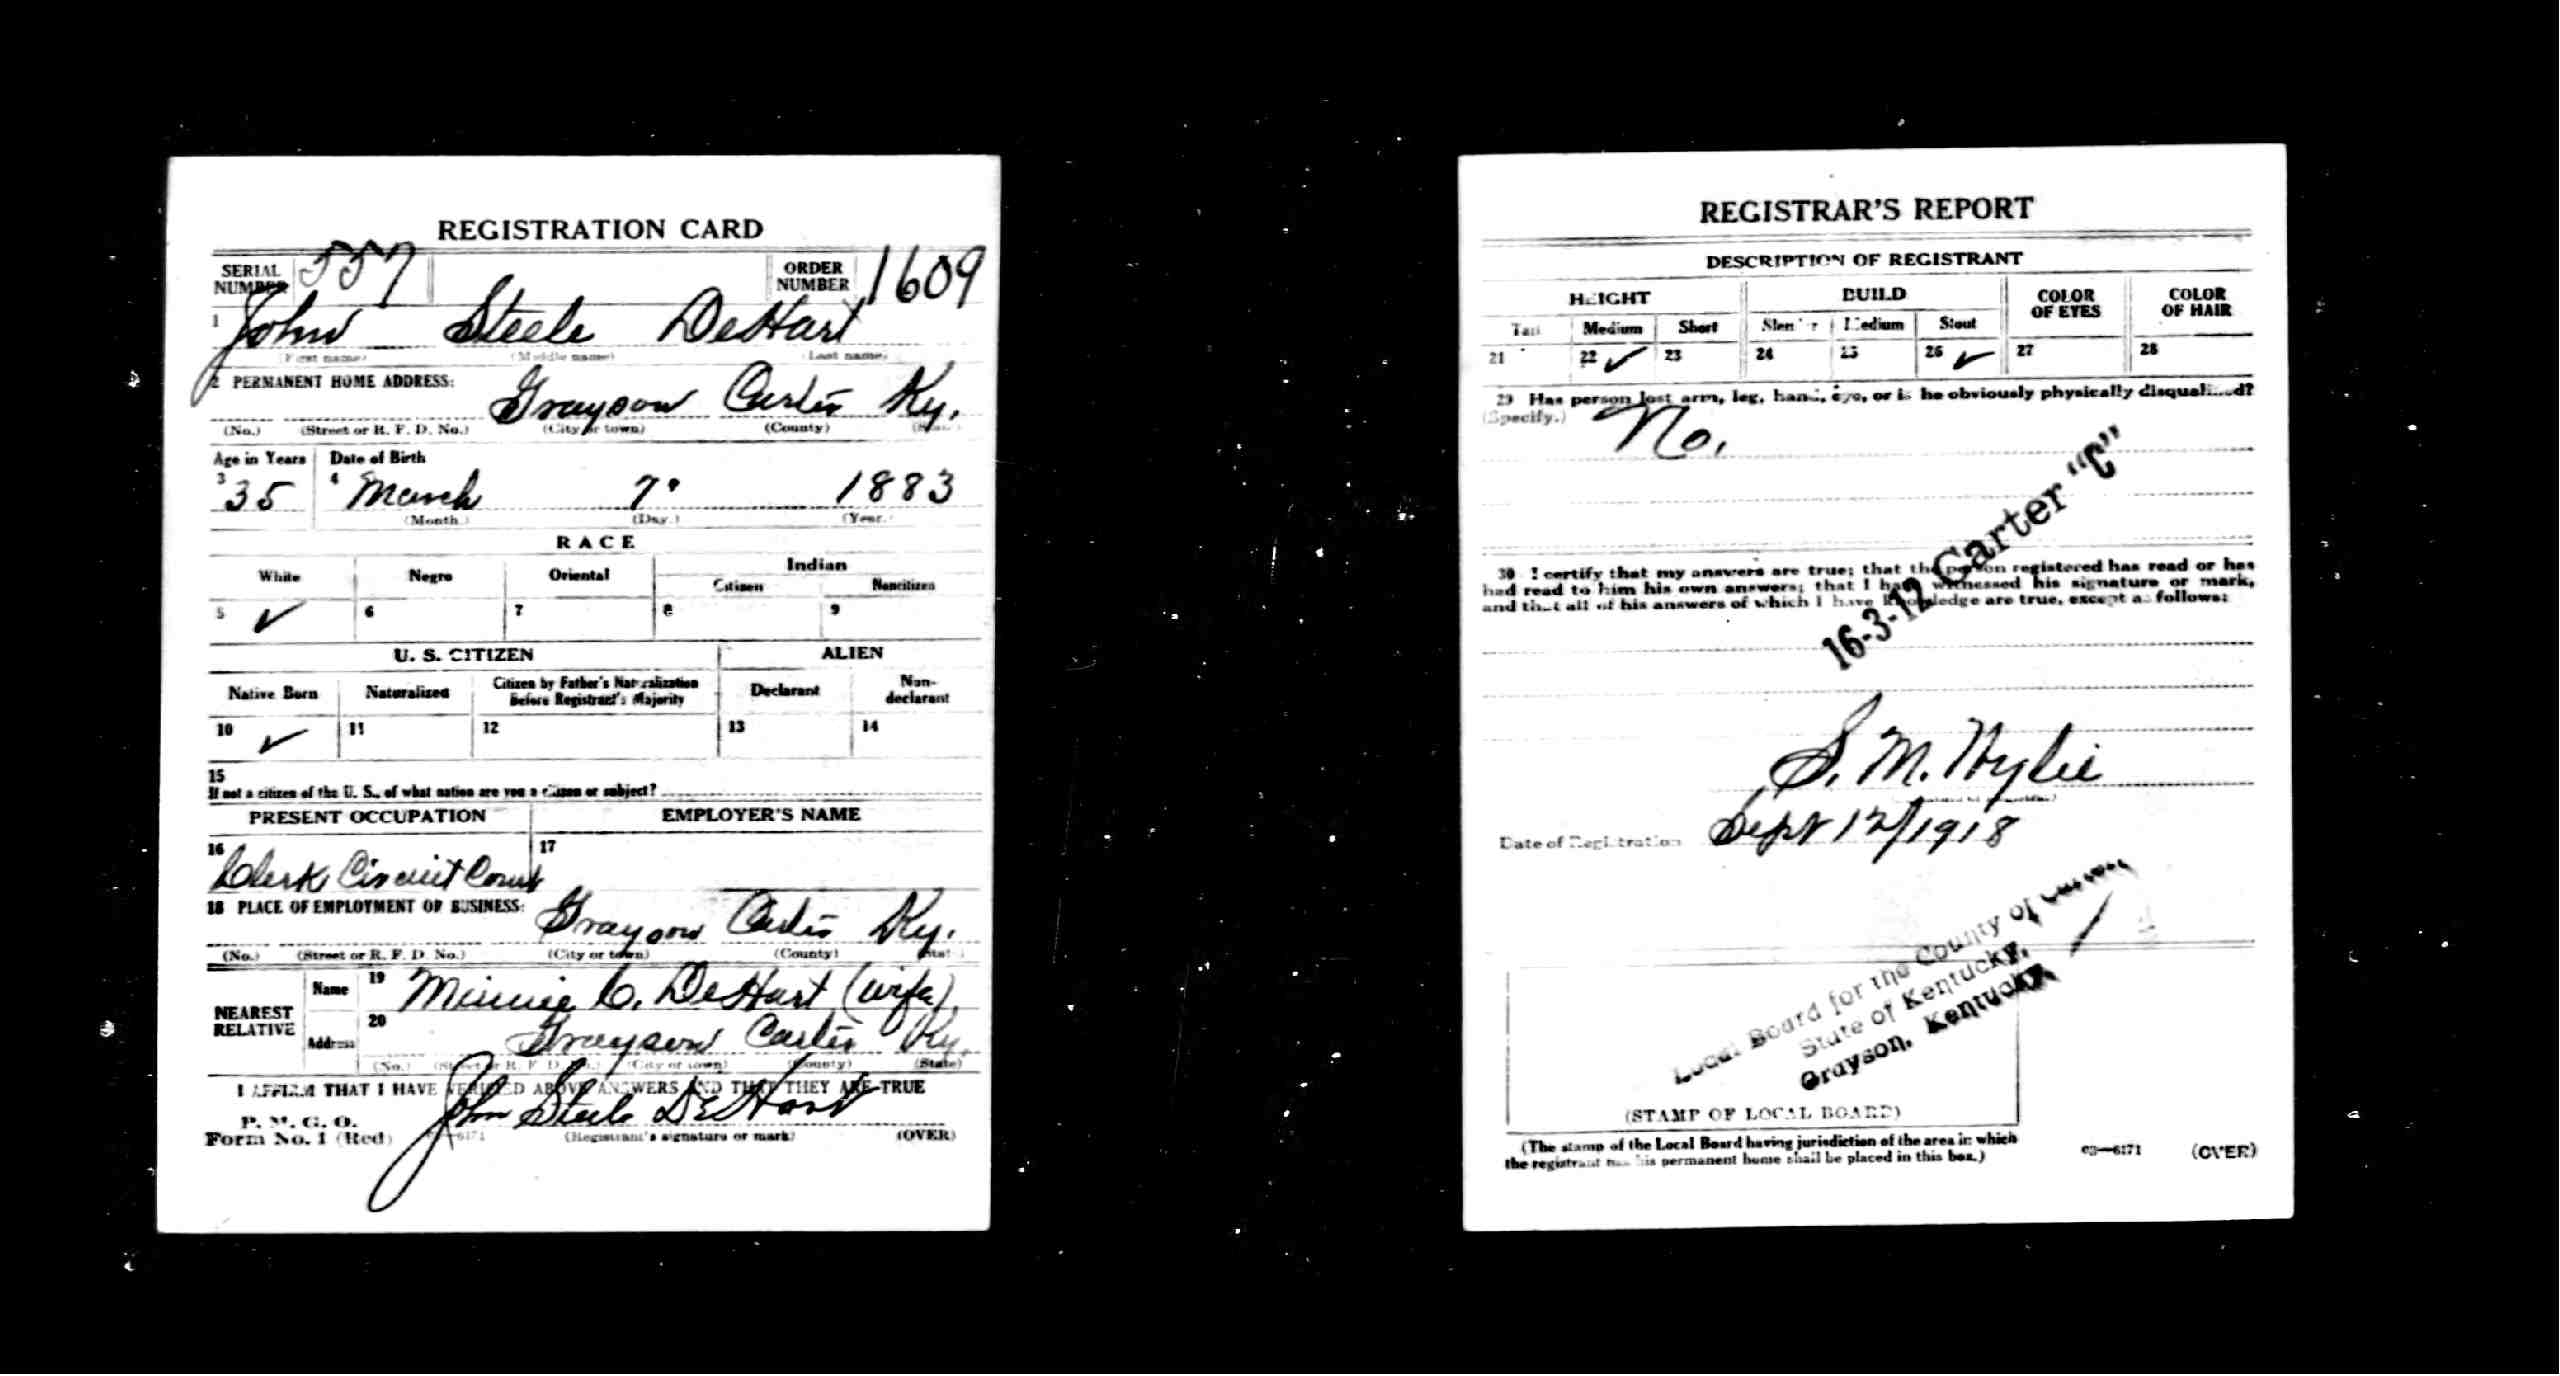 REGISTRATION CARD
SERIAL NUMBER 557 ORDER NUMBER 1609
1 John Steele DeHart
(First name) (Middle name) (Last name)
2 PERMANENT HOME ADDRESS:
Grayson Carter Ky.
(No.) (Street or R. F. D. No.) (City or town) (County) (State)
Age in Years Date of Birth
3 35 4 March 7 1883
(Month.) (Day.) (Year.)
RACE
White Negro Oriental Indian
Citizen Noncitizen
5 ✓ 6 7 8 9
U. S. CITIZEN ALIEN
Native Born Naturalized Citizen by Father's Naturalization Before Registrant's Majority Declarant Non-declarant
10 ✓ 11 12 13 14
15
If not a citizen of the U. S., of what nation are you a citizen or subject?
PRESENT OCCUPATION EMPLOYER'S NAME
16 Clerk Circuit Court 17
18 PLACE OF EMPLOYMENT OR BUSINESS:
Grayson Carter Ky.
(No.) (Street or R. F. D. No.) (City or town) (County) (State)
NEAREST RELATIVE
Name 19 Minnie C. DeHart (wife)
Address 20 Grayson Carter Ky.
(No.) (Street or R. F. D. No.) (City or town) (County) (State)
I AFFIRM THAT I HAVE VERIFIED ABOVE ANSWERS AND THAT THEY ARE TRUE
P. M. G. O.
Form No. 1 (Red) John Steele DeHart
(Registrant's signature or mark) (OVER)
REGISTRAR'S REPORT
DESCRIPTION OF REGISTRANT
HEIGHT BUILD COLOR OF EYES COLOR OF HAIR
Tall Medium Short Slender Medium Stout
21 22 ✓ 23 24 25 26 ✓ 27 28
29 Has person lost arm, leg, hand, eye, or is he obviously physically disqualified?
(Specify.) No.
30 I certify that my answers are true; that the person registered has read or has
had read to him his own answers; that I have witnessed his signature or mark,
and that all of his answers of which I have knowledge are true, except as follows:
16-3-12 Carter "C"
S. M. Hylie
Date of Registration Sept 12/1918
Local Board for the County of Carter
State of Kentucky,
Grayson, Kentucky
(STAMP OF LOCAL BOARD)
(The stamp of the Local Board having jurisdiction of the area in which
the registrant has his permanent home shall be placed in this box.)
03—6171 (OVER)